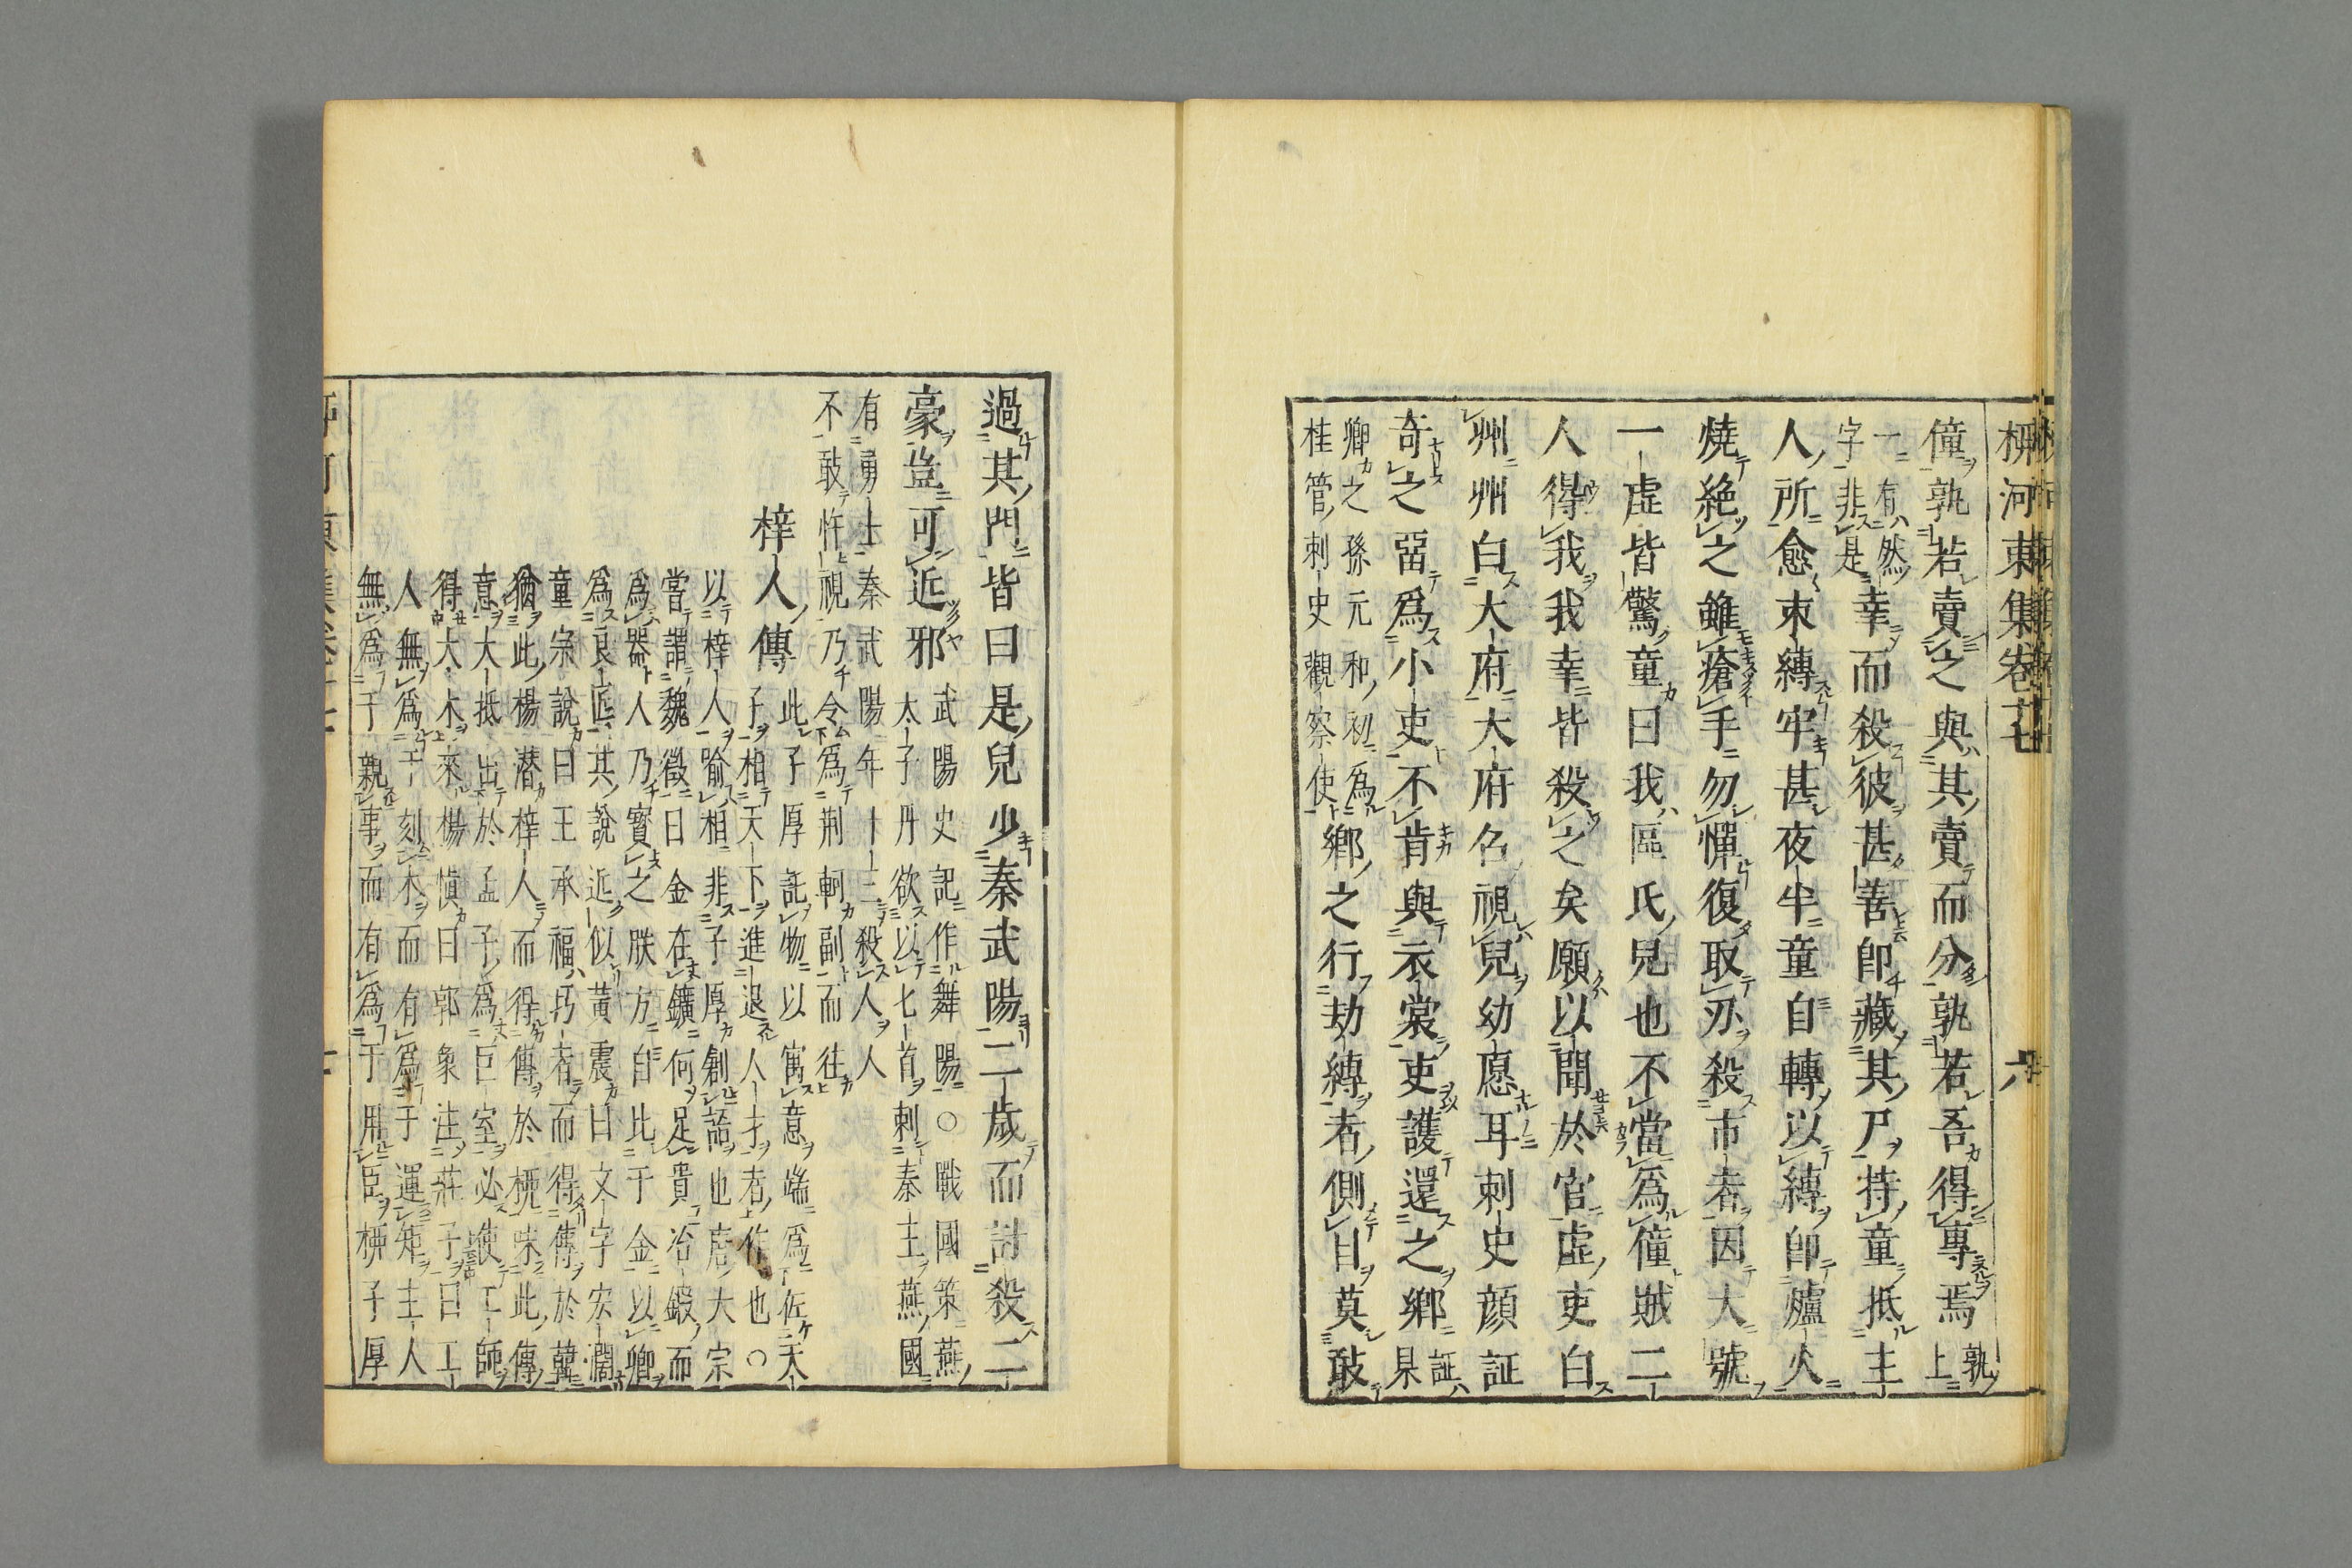 柳河東集卷十七
六
僮孰若賣之與其賣而分孰若吾得專焉孰上
一有然字非是幸而殺彼甚善卽藏其尸持童抵主
人所愈束縛牢甚夜半童自轉以縛卽爐火
燒絶之雖瘡手勿憚復取刃殺市者因大號
一虛皆驚童曰我區氏兒也不當爲僮賊二
人得我我幸皆殺之矣願以聞於官虛吏白
州州白大府大府召視兒幼愿耳刺史顔証
奇之畱爲小吏不肯與衣裳吏護還之鄉証杲
卿之孫元和初爲桂管刺史觀察使鄉之行劫縛者側目莫敢
過其門皆曰是兒少秦武陽二歲而討殺二
豪豈可近邪武陽史記作舞陽○戰國策燕
太子丹欲以匕首刺秦王燕國
有勇士秦武陽年十三殺人人
不敢忤視乃令爲荆軻副而往
梓人傳此子厚託物以寓意端爲佐天
子相天下進退人才者作也○
以梓人喻相非子厚創語也唐大宗
嘗謂魏徵曰金在鑛何足貴冶鍛而
爲器人乃寳之朕方自比于金以卿
爲良匠其說近似黃震曰文字宏濶
童宗說曰王承福圬者而得傳於韓
猶此楊潜梓人而得傳於栁味此傳
意大抵出於孟子爲巨室必使工師
得大木來楊愼曰郭象注莊子曰工
人無爲于刻木而有爲于運矩主人
無爲于親事而有爲于用臣栁子厚